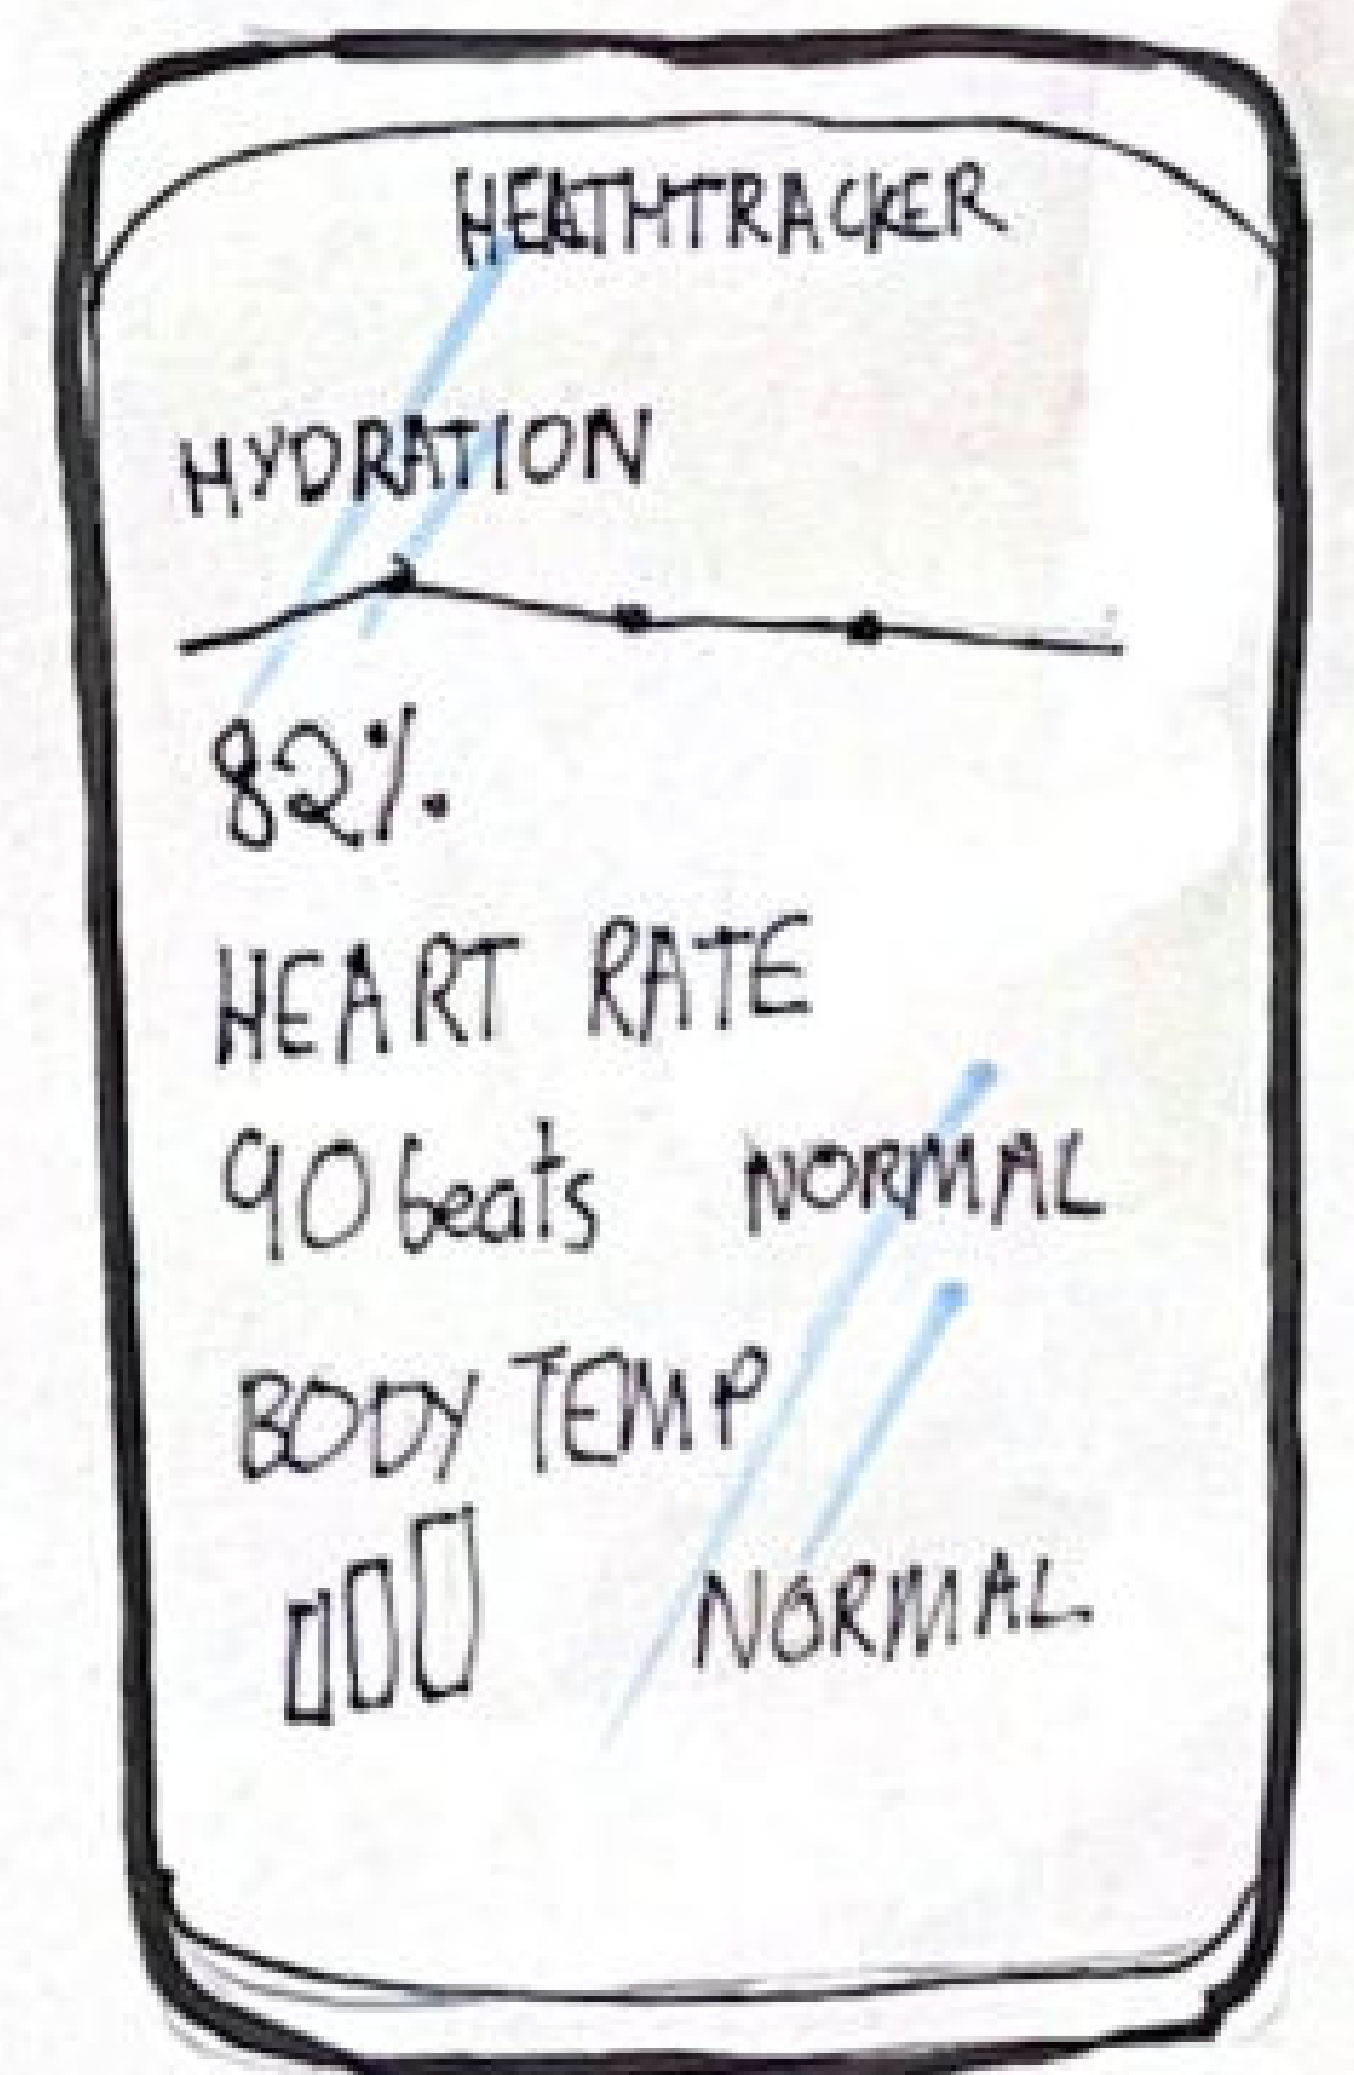 HEATHTRACKER
HYDRATION
82%
HEART RATE
90 beats NORMAL
BODY TEMP
NORMAL